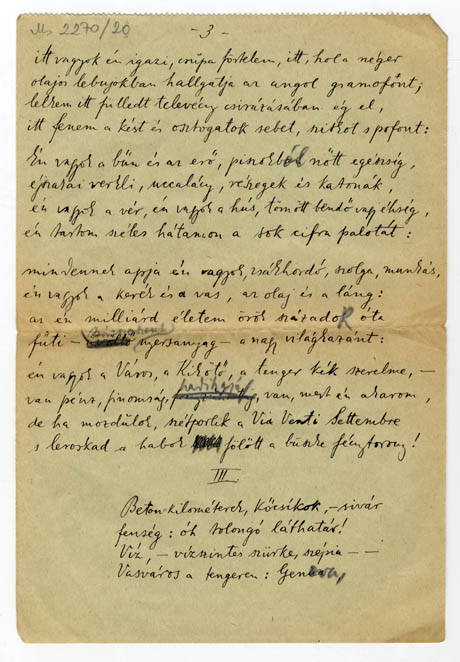 Ms 2270/20
- 3 -
itt vagyok én igazi, csupa förtelem, itt, hol a néger
olajos lebujokban hallgatja az angol gramofónt;
lelkem itt fülledt televény csirázásában ég el,
itt fenem a kést és osztogatok sebet, szitkot s pofont:
Én vagyok a bűn és az erő, piszokból nőtt egészség,
éjszakai verkli, uccalány, részegek és katonák,
én vagyok a vér, én vagyok a hús, tömött bendő vagy éhség,
én tartom széles hátamon a sok cifra palotát:
mindennek apja én vagyok, zsákhordó, szolga, munkás,
én vagyok a kerék és a vas, az olaj és a láng:
az én milliárd életem örök századok óta
fűti - nyersanyag - a nagy világkazánt:
én vagyok a Város, a Kikötő, a tenger kék szerelme, -
van pénz, finomság, van, mert én akarom,
de ha mozdulok, szétporlik a Via Venti Settembre
s leroskad a habok fölött a büszke fénytorony!
III
Beton-kilométerek, Kőcsíkok, - sivár
fenség: óh tolongó láthatár!
Víz, - vízszintes szürke, szépia - -
Vasváros a tengeren: